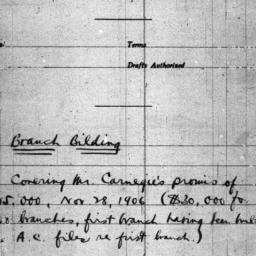 Terms
Drafts Authorized
Branch Bilding
Covering Mr. Carnegie's promis of
5,000, Nov 28, 1906 ($30,000 for
branches, first branch having been
A.C. files re first branch.)